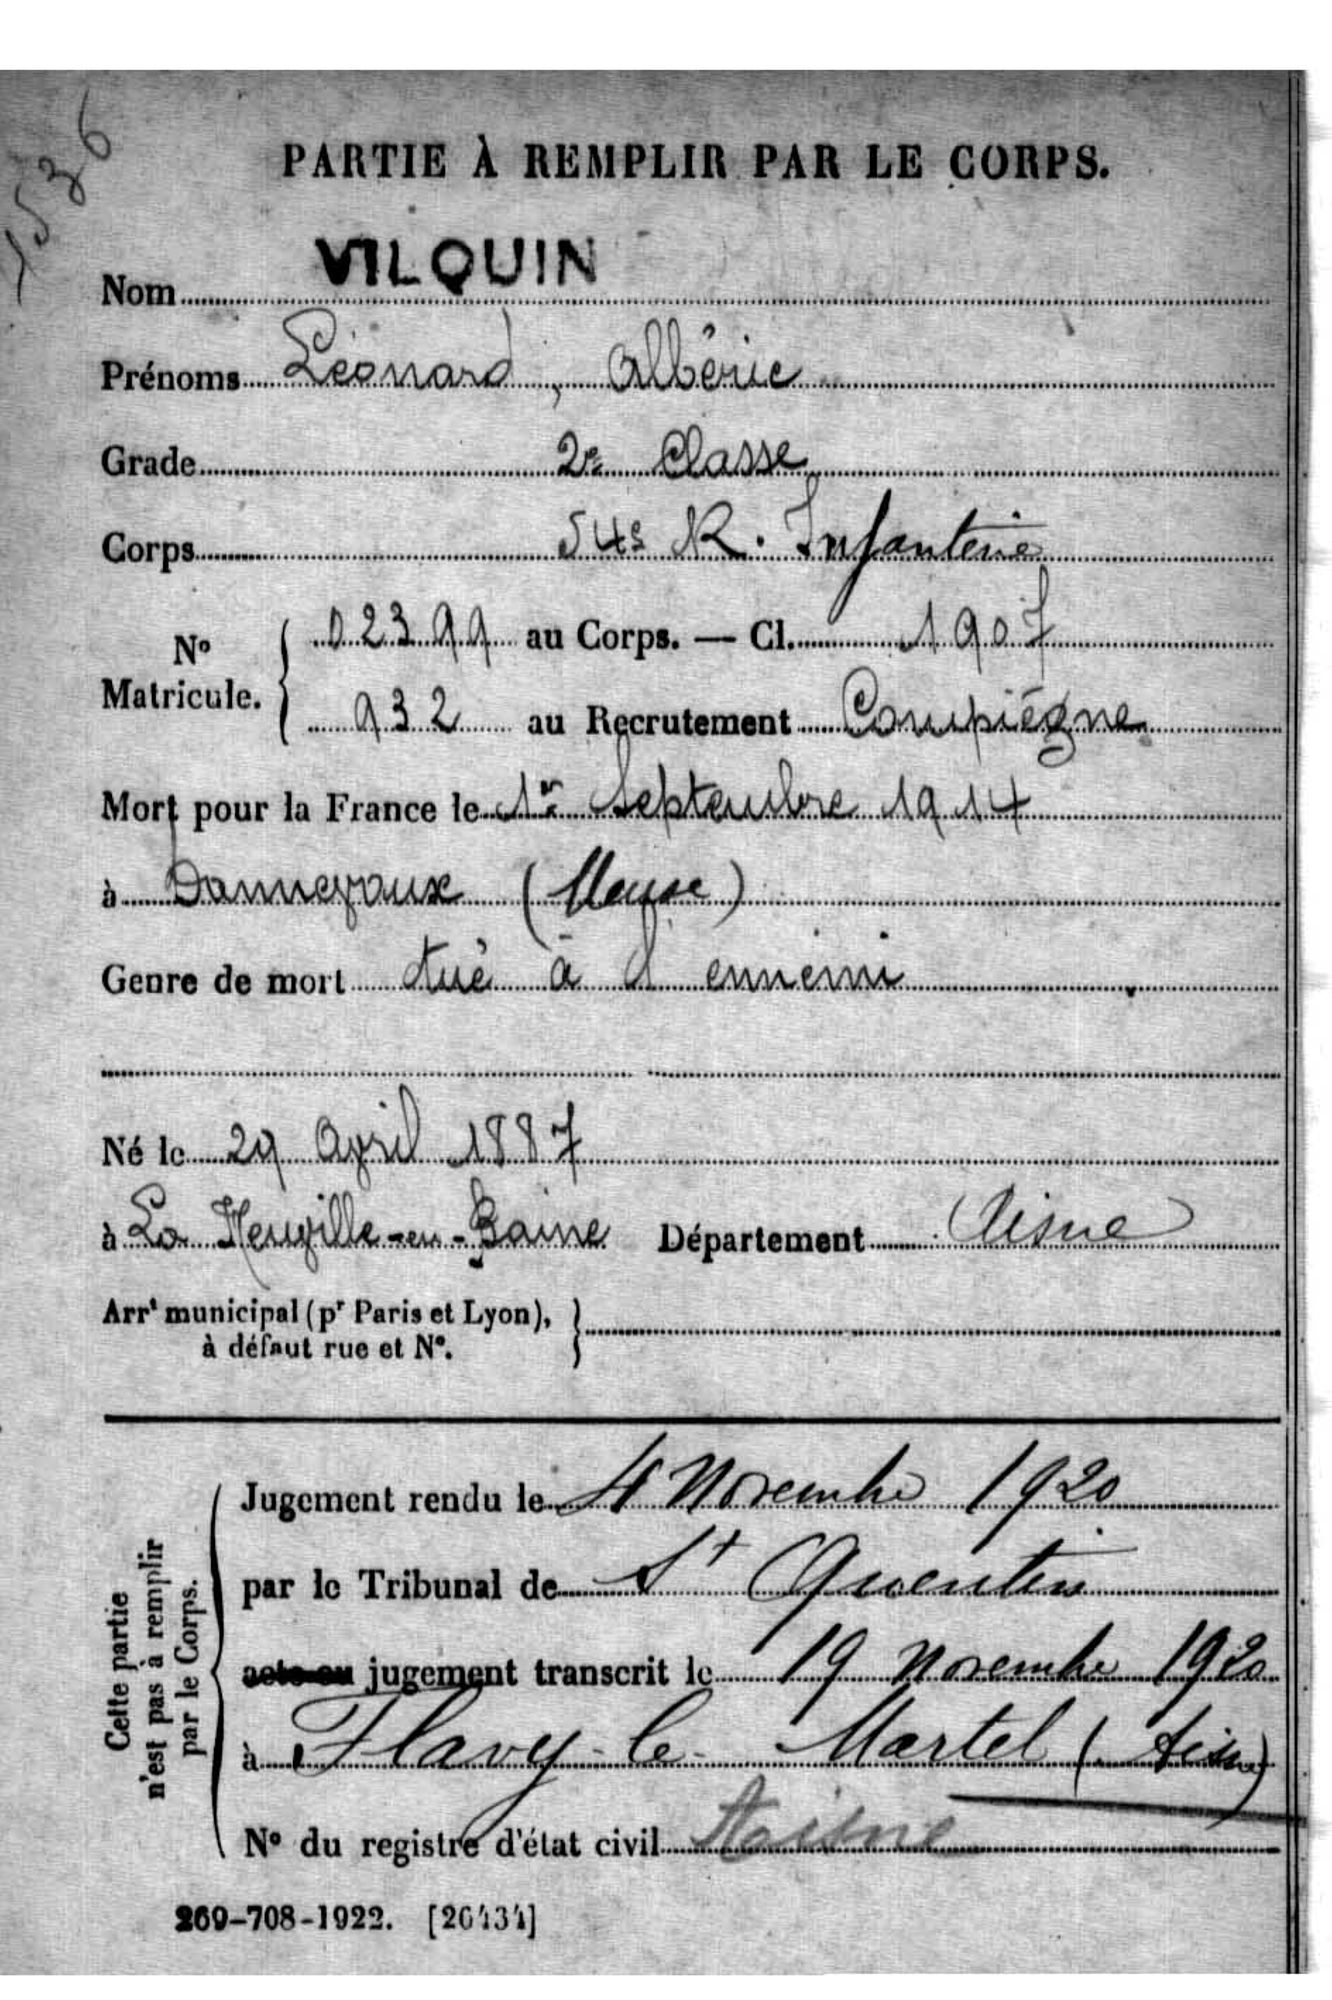 1536
PARTIE À REMPLIR PAR LE CORPS.
Nom VILQUIN
Prénoms Léonard, Albéric
Grade 2e Classe
Corps 54e R. Infanterie
No Matricule. { 02399 au Corps. — Cl. 1907
932 au Recrutement Compiégne
Mort pour la France le 1er Septembre 1914
à Dannevoux (Meuse)
Genre de mort tué à l'ennemi
Né le 29 Avril 1887
à La Neuville-en-Baine Département Aisne
Arrt municipal (pr Paris et Lyon),
à défaut rue et No. }
Cette partie
n'est pas à remplir
par le Corps.
Jugement rendu le 4 Novembre 1920
par le Tribunal de St Quentin
acte ou jugement transcrit le 19 Novembre 1920
à Flavy-le-Martel (Aisne)
No du registre d'état civil Aisne
269-708-1922. [26434]